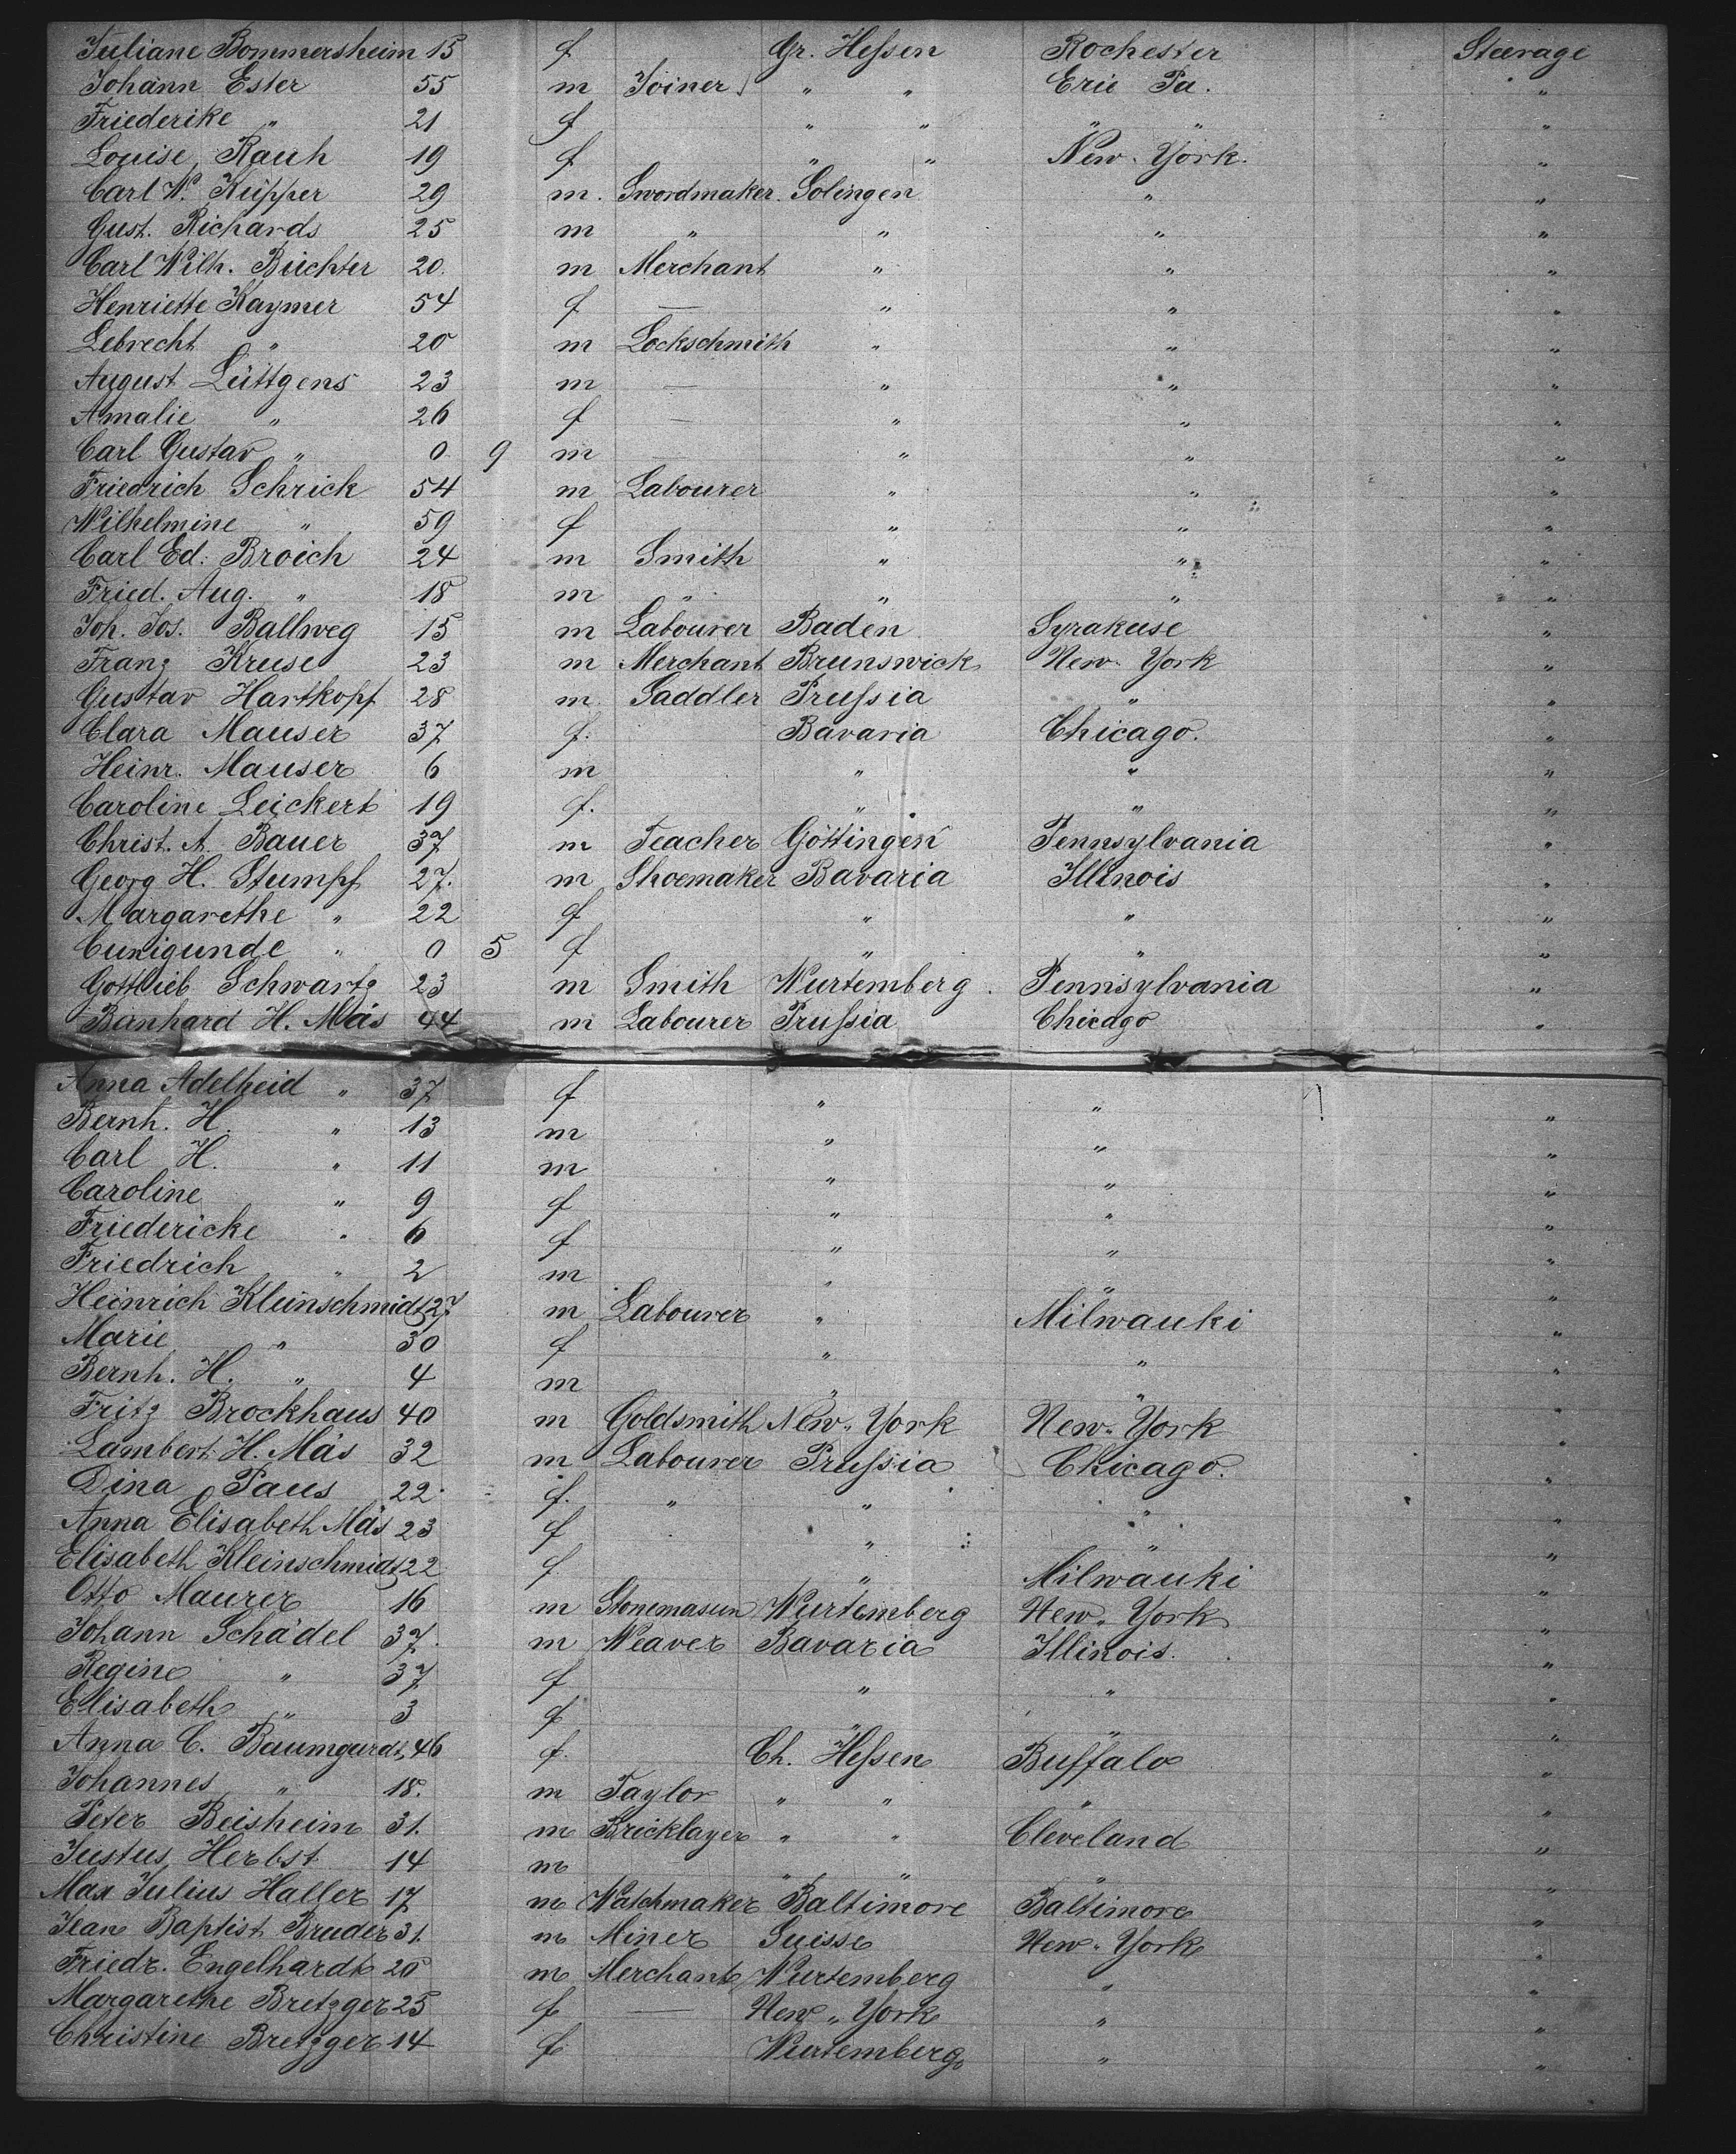 Juliane Bommersheim 15 f Gr. Hessen Rochester Steerage
Johann Ester 55 m Joiner " " Erie Pa. "
Friederike " 21 f " " " " "
Louise Rauh 19 f " " New-York. "
Carl W. Küpper 29 m. Swordmaker. Solingen " "
Gust. Richards 25 m " " " "
Carl Wilh. Büchter 20. m Merchant " " "
Henriette Kaymer 54 f — " " "
Lebrecht " 20 m Lockschmith " " "
August Lüttgens 23 m — " " "
Amalie " 26 f — " " "
Carl Gustav " 0 9 m — " " "
Friedrich Schrick 54 m Labourer " " "
Wilhelmine " 59 f " " "
Carl Ed. Broich 24 m Smith " " "
Fried. Aug. " 18 m " " " "
Joh. Jos. Ballweg 15 m Labourer Baden Syrakuse "
Franz Kruse 23 m Merchant Brunswick New-York "
Gustav Hartkopf 28 m. Saddler Prussia " "
Clara Mauser 37 f. Bavaria Chicago. "
Heinr. Mauser 6 m " " "
Caroline Leickert 19 f. " " "
Christ. A. Bauer 37 m Teacher Göttingen Pennsylvania "
Georg H. Stumpf 27. m Shoemaker Bavaria Illinois "
Margarethe " 22 f " " "
Cunigunde " 0 5 f " " "
Gottlieb Schwartz 23 m Smith Wurtemberg. Pennsylvania "
Bernhard H. Mäs 44 m Labourer Prussia Chicago "
Anna Adelheid " 37 f " " "
Bernh. H. " 13 m " " "
Carl H. " 11 m " " "
Caroline " 9 f " " "
Friedericke " 6 f " " "
Friedrich " 2 m " " "
Heinrich Kleinschmidt 27 m Labourer " Milwauki "
Marie " 30 f " " "
Bernh. H. " 4 m " " "
Fritz Brockhaus 40 m Goldsmith New-York New-York "
Lambert H. Mäs 32 m Labourer Prussia Chicago. "
Dina Paus 22. f. " " " "
Anna Elisabeth Mäs 23 f " " "
Elisabeth Kleinschmidt 22 f " Milwauki "
Otto Maurer 16 m Stonemasun Wurtemberg New-York "
Johann Schädel 37. m Weaver Bavaria Illinois. "
Regine " 37 f " " "
Elisabeth " 3 f " " "
Anna C. Baumgardt 46 f. Ch. Hessen Buffalo "
Johannes " 18. m Taylor " " " "
Peter Beisheim 31. m Bricklayer " " Cleveland "
Justus Herbst 14 m " " " "
Max Julius Haller 17 m Watchmaker Baltimore Baltimore "
Jean Baptist Bruder 31. m Miner Suisse New-York "
Friedr. Engelhardt 20 m Merchant Wurtemberg " "
Margarethe Bretzger 25 f — New-York " "
Christine Bretzger 14 f Wurtemberg " "